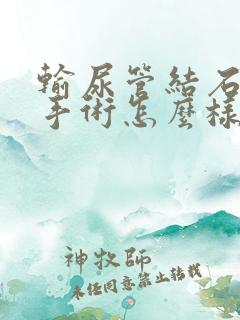 輸尿管結石
手術怎麼樣
神牧師
未經同意禁止轉載